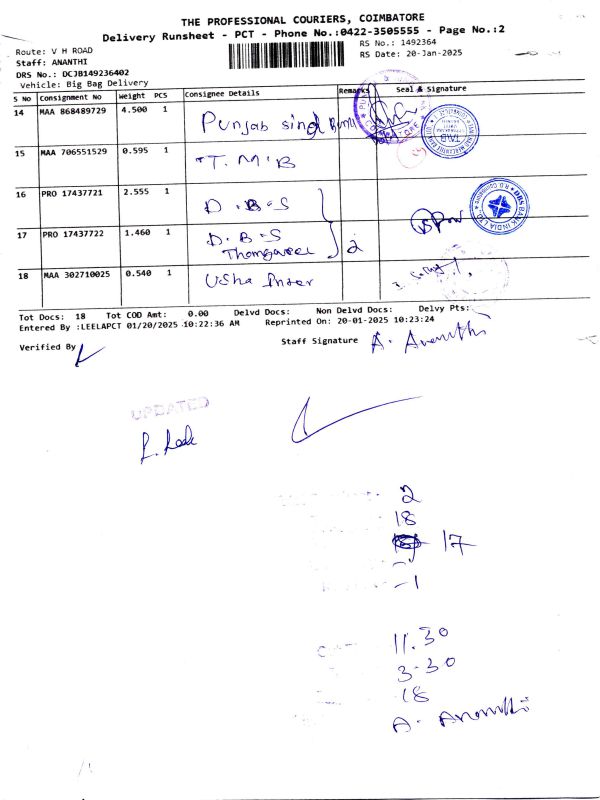 THE PROFESSIONAL COURIERS, COIMBATORE
Delivery Runsheet - PCT - Phone No.:0422-3505555 - Page No.:2
Route: V H ROAD
RS No.: 1492364
Staff: ANANTHI
RS Date: 20-Jan-2025
DRS No.: DCJB149236402
Vehicle: Big Bag Delivery
S No Consignment No Weight PCS Consignee Details Remarks Seal & Signature
14 MAA 868489729 4.500 1 Punjab sind
15 MAA 706551529 0.595 1 T.M.B
16 PRO 17437721 2.555 1 D.B.S
17 PRO 17437722 1.460 1 D.B.S 2
18 MAA 302710025 0.540 1 Usha
DBS BANK INDIA LTD
Tot Docs: 18 Tot COD Amt: 0.00 Delvd Docs: Non Delvd Docs: Delvy Pts:
Entered By :LEELAPCT 01/20/2025 10:22:36 AM Reprinted On: 20-01-2025 10:23:24
Verified By Staff Signature A. Ananthi
UPDATED
2
18
17
-1
11.30
3-30
18
A. Ananthi